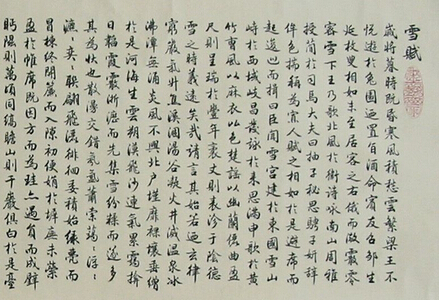 雪賦
歲將暮時既昏寒風積愁雲繁梁王不
悅遊於兔園迺置旨酒命賓友召鄒生
延枚叟相如末至居客之右俄而微霰零
密雪下王乃歌北風於衛詩詠南山周雅
授簡於司馬大夫曰抽子秘思騁子妍辭
侔色揣稱為寡人賦之相如於是避席而
起逡巡而揖曰臣聞雪宮建於東國雪山
峙於西域岐昌發詠於來思滿申歌於黃
竹曹風以麻衣比色楚謠以幽蘭儷曲盈
尺則呈瑞於豐年袤丈則表沴於陰德
雪之時義遠矣哉請言其始若迺玄律
窮嚴氣升焦溪涸湯谷凝火井滅溫泉冰
沸潭無涌炎風不興北戶墐扉裸壤垂繒
於是河海生雲朔漠飛沙連氣累靄揜
日韜霞霰淅瀝而先集雪紛糅而遂多
其為狀也散漫交錯氛氳蕭索藹藹浮浮
瀌瀌弈弈聯翩飛灑徘徊委積始緣甍而
冒棟終開簾而入隙初便娟於墀廡末縈
盈於帷席既因方而為珪亦遇圓而成璧
眄隰則萬頃同縞瞻山則千巖俱白於是臺